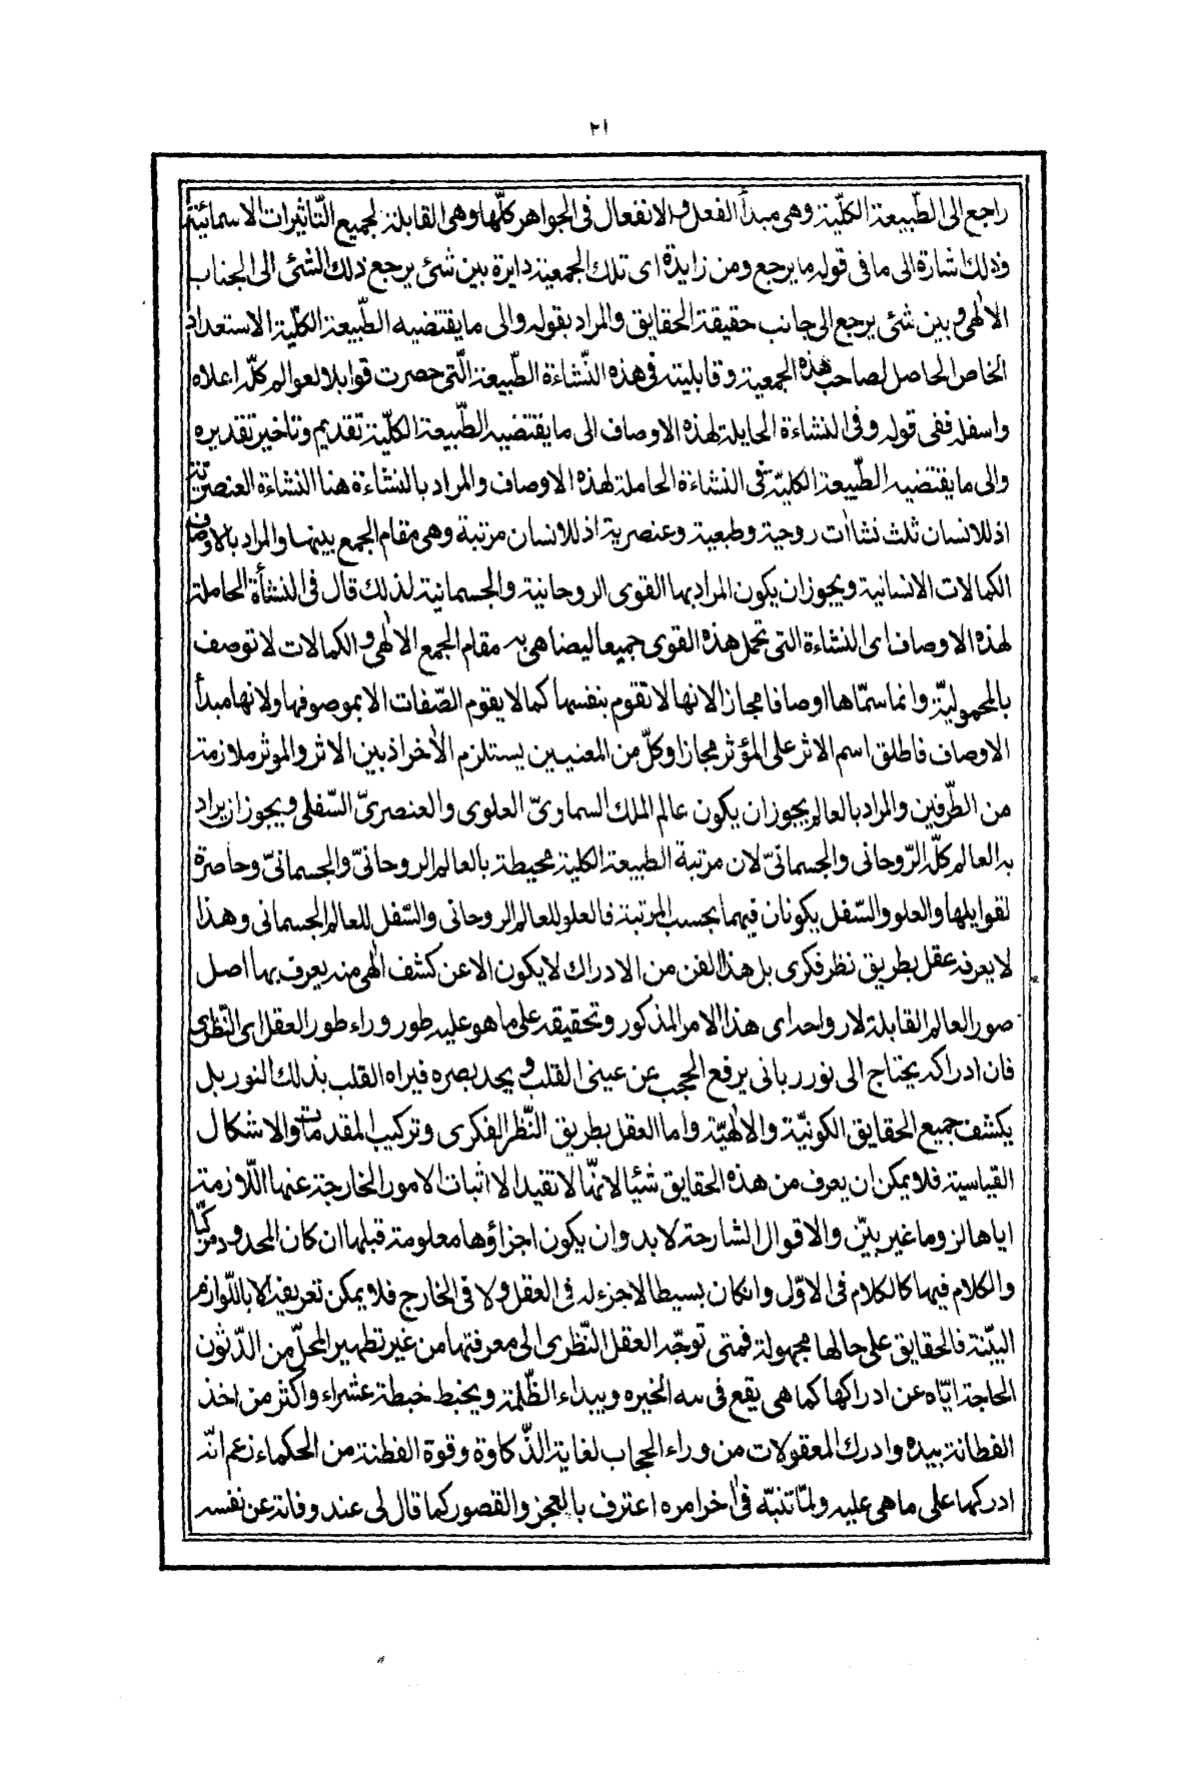 ٢١
راجع الى الطّبيعة الكلّية وهى مبدأ الفعل والانفعال فى الجواهر كلّها وهى القابلة لجميع التّاثيرات الاسمائيّة
وذلك اشارة الى ما فى قوله ما يرجع ومن زايدة اى تلك الجمعية دايرة بين شئ يرجع ذلك الشئ الى الجناب
الالٰهى وبين شئ يرجع الى جانب حقيقة الحقايق والمراد بقوله والى ما يقتضيه الطّبيعة الكلّية الاستعداد
الخاص الحاصل لصاحب هذه الجمعية وقابليته فى هذه النّشاءة الطّبيعة الّتى حصرت قوابلا لعوالم كلّ اعلاه
واسفله ففى قوله وفى النشاءة الحايلة لهذه الاوصاف الى ما يقتضيه الطّبيعة الكلّية تقديم وتاخير تقديره
والى ما يقتضيه الطّبيعة الكليّة فى النشاءة الحاملة لهذه الاوصاف والمراد بالنشاءة هنا النشاءة العنصريّة
اذ للانسان ثلث نشاات روحية وطبعية وعنصرية اذ للانسان مرتبة وهى مقام الجمع بينهما والمراد بالاوصاف
الكمالات الانسانية ويجوز ان يكون المراد بها القوى الروحانية والجسمانية لذلك قال فى النشأة الحاملة
لهذه الاوصاف اى النشاءة التى تحمل هذه القوى جميعا ليضاهى به مقام الجمع الالٰهى والكمالات لا توصف
بالمحموليّة وانما سمّاها اوصافا مجازا لانها لا تقوم بنفسها كما لا يقوم الصّفات الا بموصوفها ولانها مبدأ
الاوصاف فاطلق اسم الاثر على المؤثر مجازا وكلّ من المعنيين يستلزم الأخر اذ بين الاثر والموثر ملازمة
من الطّرفين والمراد بالعالم يجوز ان يكون عالم الملك السماوىّ العلوى والعنصرىّ السّفلى ويجوز ان يراد
به العالم كلّ الرّوحانى والجسمانىّ لان مرتبة الطبيعة الكلية محيطة بالعالم الروحانىّ والجسمانىّ وحاصرة
لقوابلها والعلو والسّفل يكونان فيهما بحسب المرتبة فالعلو للعالم الروحانى والسّفل للعالم الجسمانى وهذا
لا يعرفه عقل بطريق نظر فكرى بل هذا الفن من الادراك لا يكون الا عن كشف الٰهى منه يعرف بها اصل
صور العالم القابلة لار واحد اى هذا الامر المذكور وتحقيقه على ما هو عليه طور وراء طور العقل اى النّظرى
فان ادراكه يحتاج الى نور ربانى يرفع الحجب عن عينى القلب ويحد بصره فيراه القلب بذلك النور بل
يكشف جميع الحقايق الكونيّة والالٰهيّة واما العقل بطريق النّظر الفكرى وتركيب المقدمات والاشكال
القياسية فلا يمكن ان يعرف من هذه الحقايق شيئا لانهّا لا تقيد الا اثبات الامور الخارجة عنها اللّازمة
اياها لزوما غير بيّن والاقوال الشارحة لا بد وان يكون اجزاؤها معلومة قبلها ان كان المحدود مركّبا
والكلام فيها كالكلام فى الاوّل وانكان بسيطا لا جزء له فى العقل ولا فى الخارج فلا يمكن تعريفه الا باللّوازم
البيّنة فالحقايق على حالها مجهولة فمتى توجّه العقل النّظرى الى معرفتها من غير تطهير المحلّ من الدّثون
الحاجة ايّاه عن ادراكها كما هى يقع فى تيه الحيره وبيداء الظّلمة ويخبط خبطة عشراء واكثر من اخذ
الفطانة بيده وادرك المعقولات من وراء الحجاب لغاية الذّكاوة وقوة الفطنة من الحكماء زعم انّه
ادركها على ما هى عليه ولمّا تنبّه فى اٰخر امره اعترف بالعجز والقصور كما قال لى عند وفاته عن نفسه